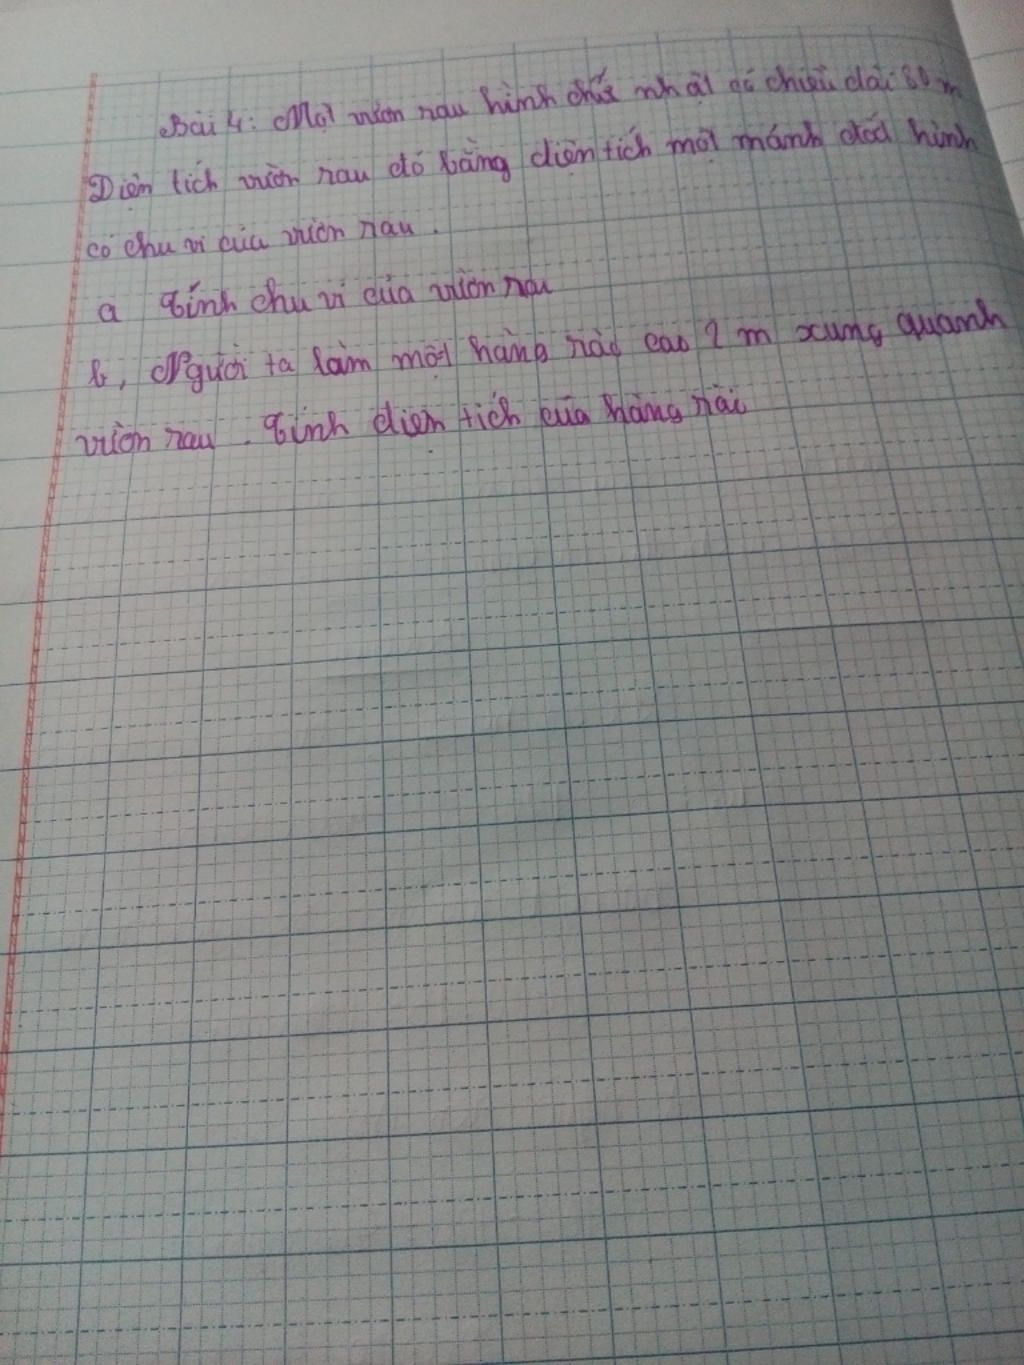 Bài 4: Một vườn rau hình chữ nhật có chiều dài 80 m
Diện tích vườn rau đó bằng diện tích một mảnh đất hình
có chu vi của vườn rau.
a Tính chu vi của vườn rau
b, Người ta làm một hàng rào cao 2 m xung quanh
vườn rau. Tính diện tích của hàng rào